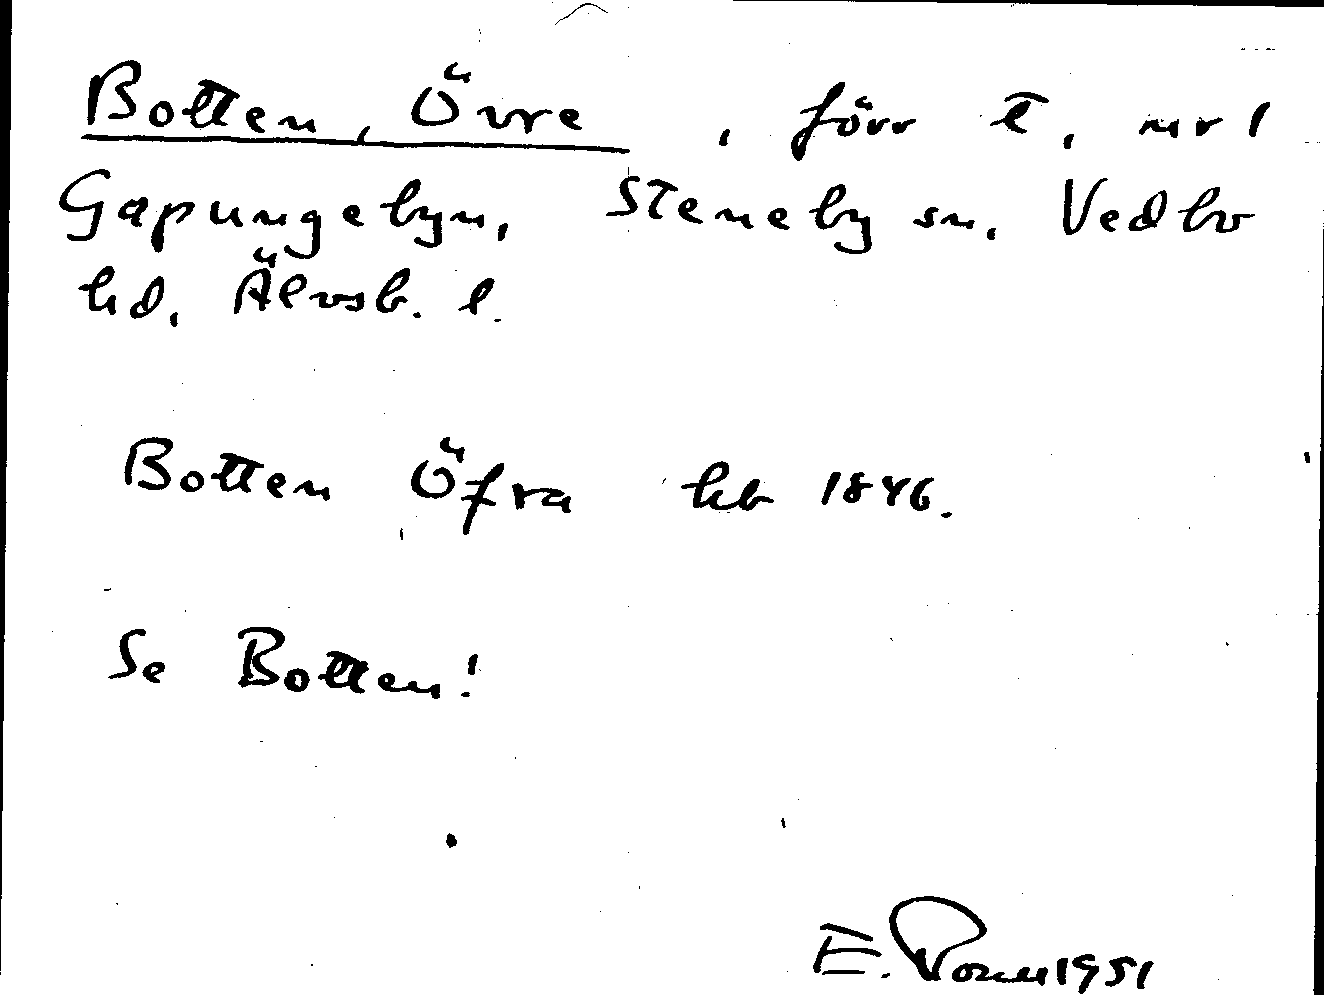 Botten, Övre, förr t, nr 1
Gapungebyn, Steneby sn. Vedbo
hd. Älvsb. l.
Botten Öfra hb 1846.
Se Botten!
E. 1951